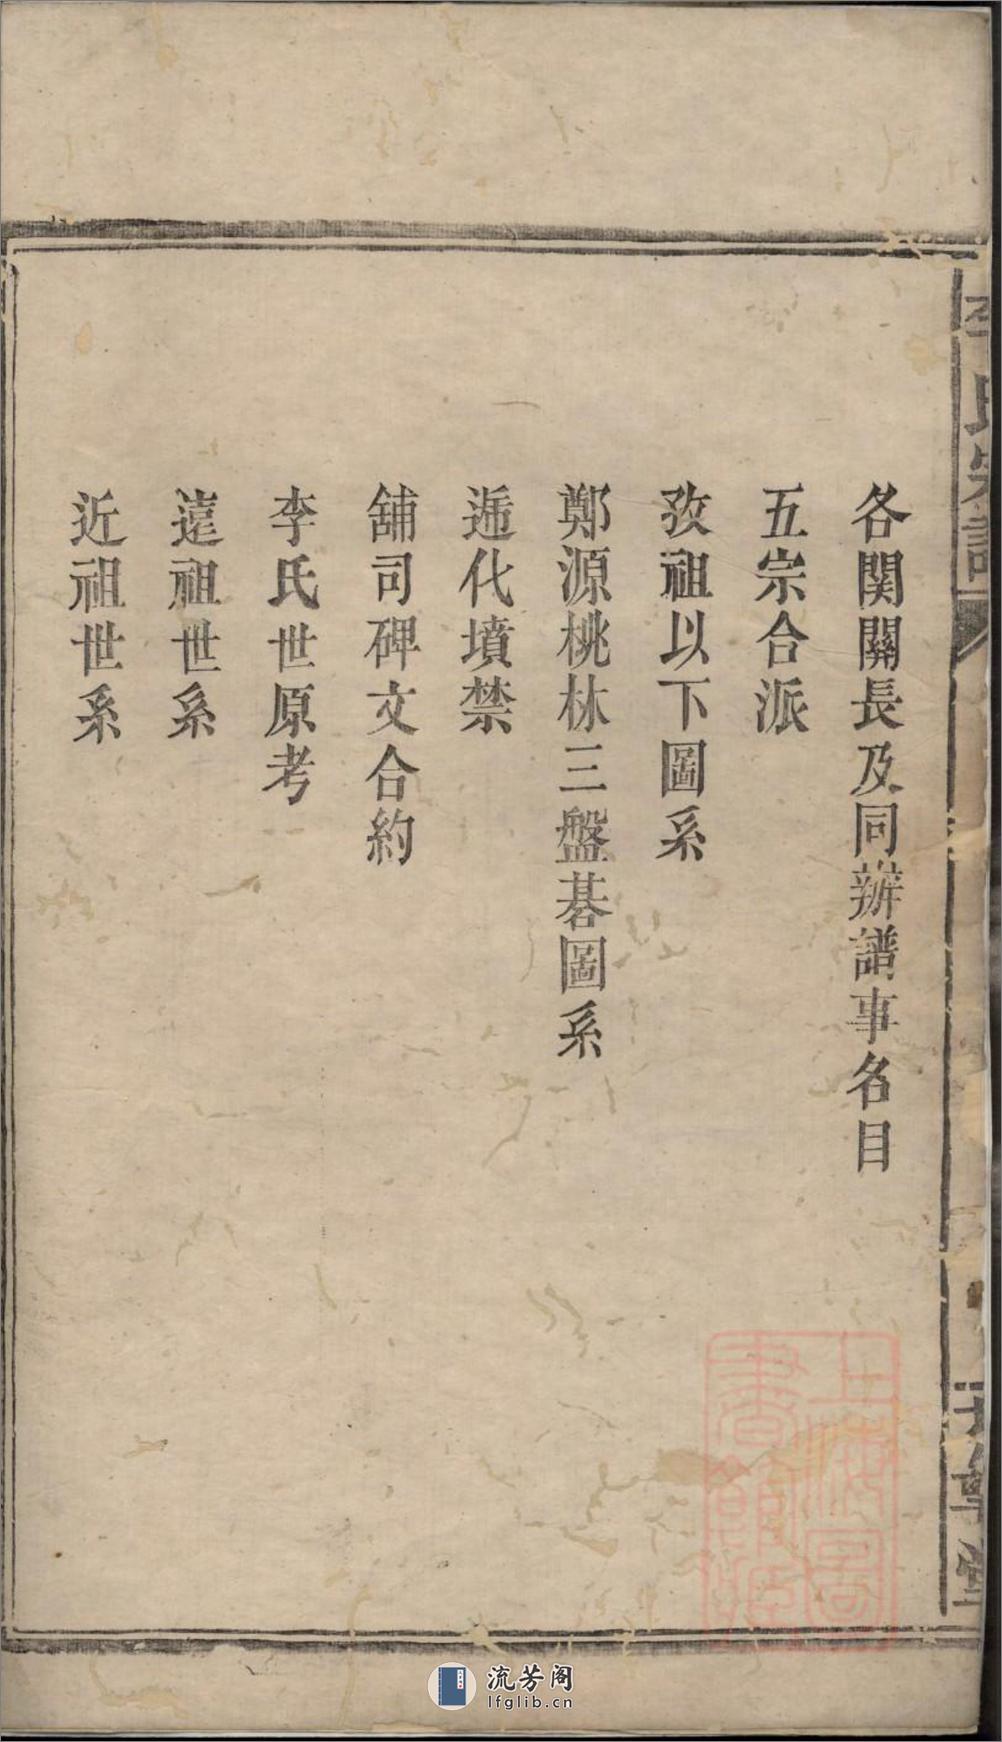 李氏宗譜
各関關長及同辦譜事名目
五宗合派
孜祖以下圖系
鄭源桃林三盤碁圖系
遞代墳禁
舖司碑文合約
李氏世原考
遠祖世系
近祖世系
上海圖書館藏
流芳阁
lfglib.cn